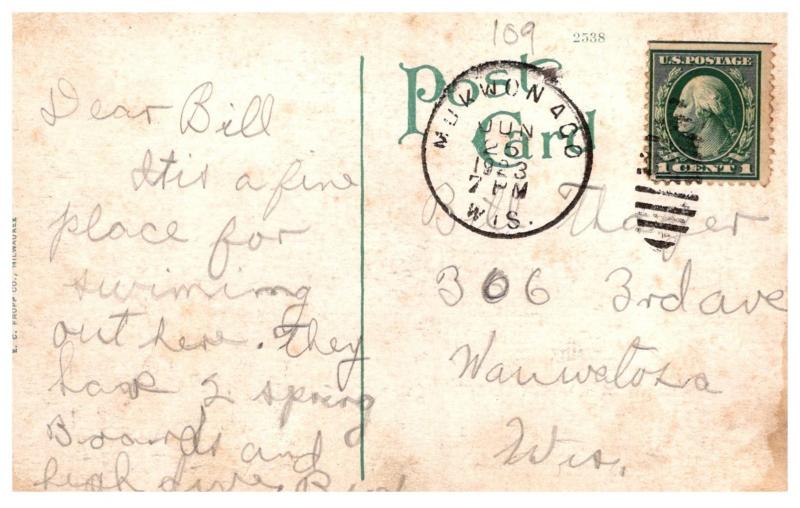 109
2538
Post
Card
U.S. POSTAGE
1 CENT 1
MUKWONAGO
JUN
26
1923
7 PM
WIS.
Dear Bill
It is a fine
place for
swiming
out here. They
have 2 spring
Boards and
high dive.
Bill Thayer
306 3rd ave
Wauwatosa
Wis.
E. C. KROPP CO., MILWAUKEE